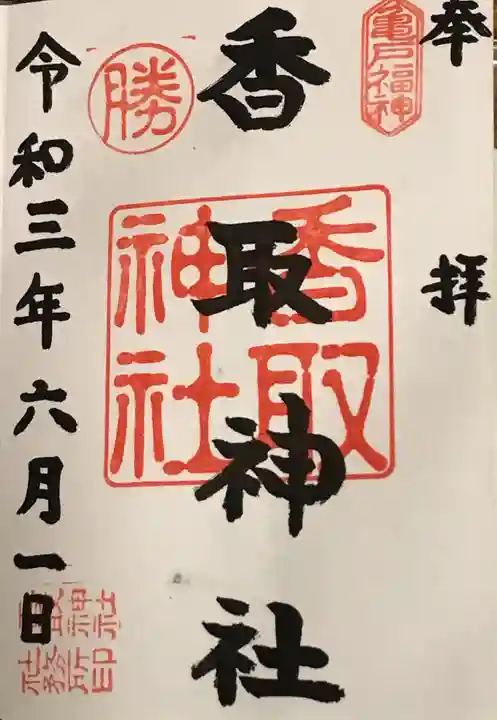 奉拝
亀戸福神
香取神社
香取神社
勝
令和三年六月一日